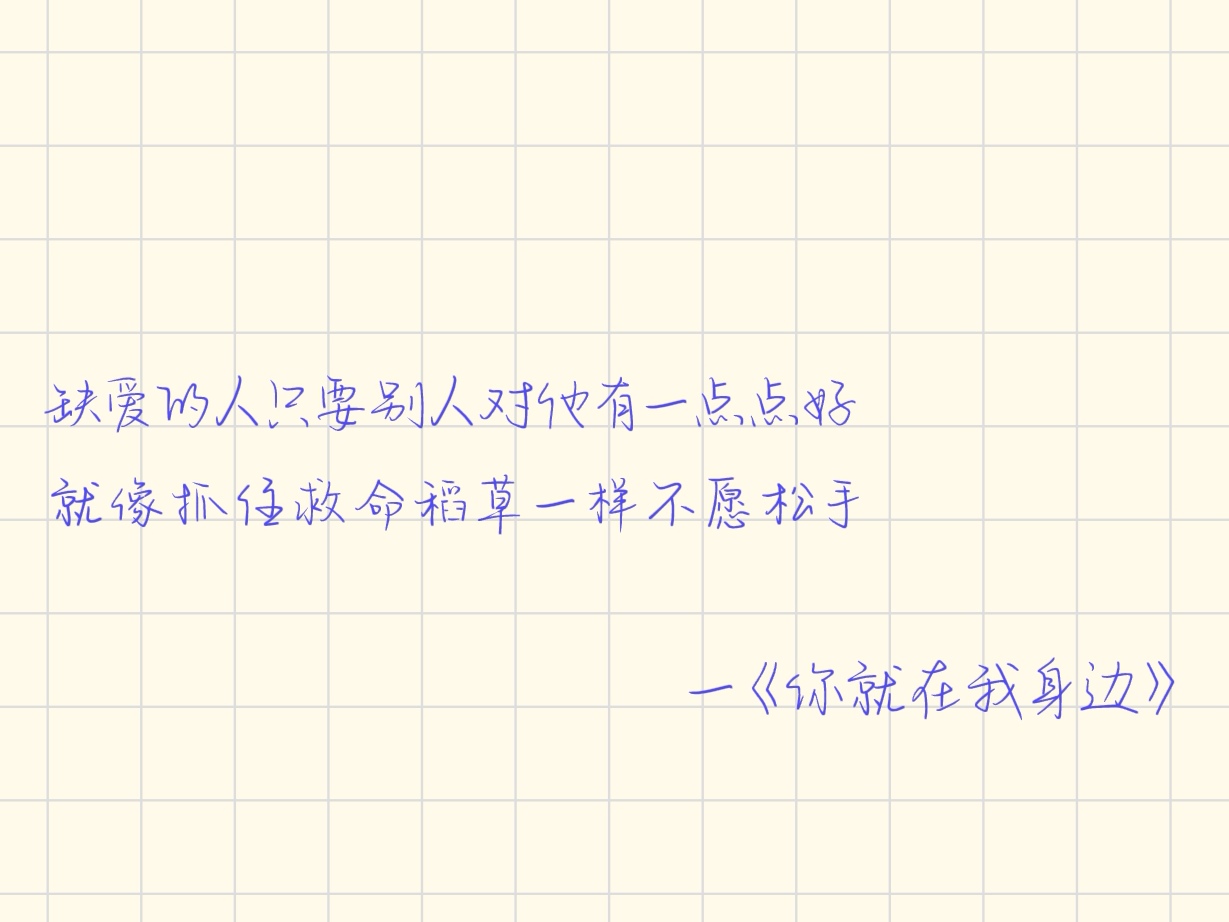 缺爱的人只要别人对他有一点点好
就像抓住救命稻草一样不愿松手
—《你就在我身边》